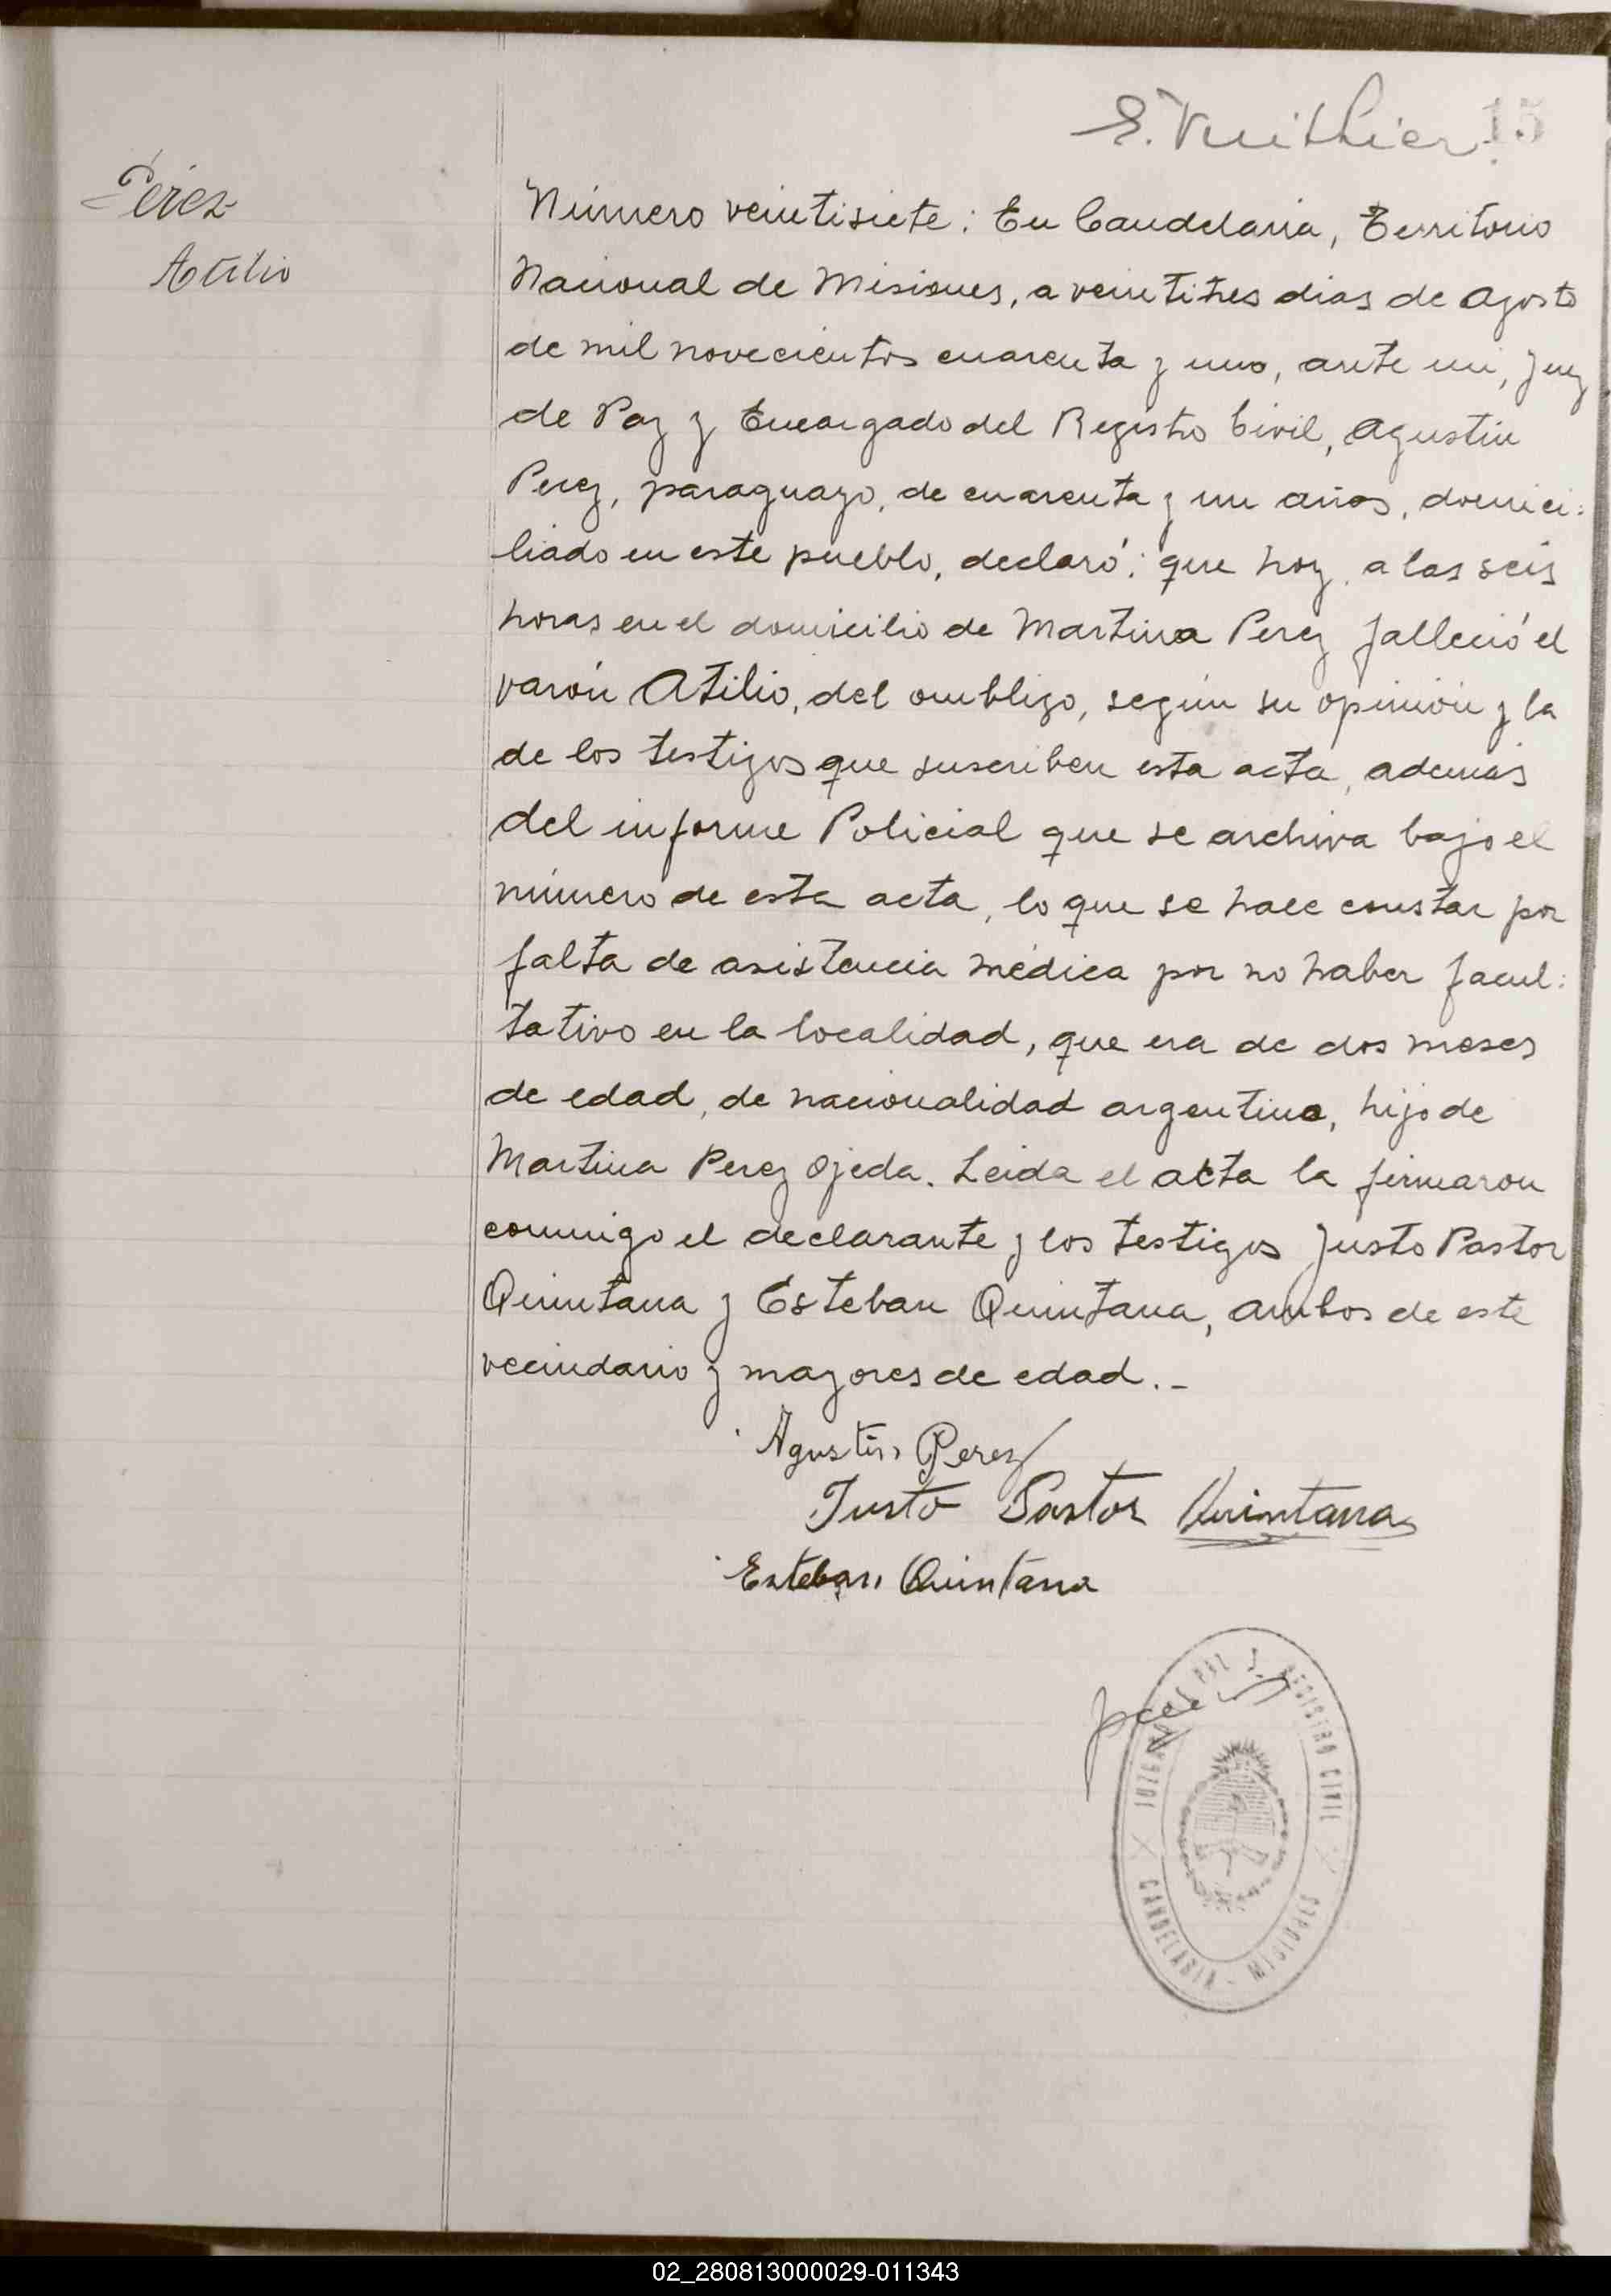 E. Vuithier 15
Pérez
Atilio
Número veintisiete: En Candelaria, Territorio
Nacional de Misiones, a veintitres dias de Agosto
de mil novecientos cuarenta y uno, ante mi, Juez
de Paz y Encargado del Registro Civil, Agustin
Perez, paraguayo, de cuarenta y un años, domici:
liado en este pueblo, declaró: que hoy, a las seis
horas en el domicilio de Martina Perez falleció el
varón Atilio, del ombligo, según su opinión y la
de los testigos que suscriben esta acta, además
del informe Policial que se archiva bajo el
número de esta acta, lo que se hace constar por
falta de asistencia médica por no haber facul:
tativo en la localidad, que era de dos meses
de edad, de nacionalidad argentina, hijo de
Martina Perez Ojeda. Leida el acta la firmaron
conmigo el declarante y los testigos Justo Pastor
Quintana y Esteban Quintana, ambos de este
vecindario y mayores de edad.-
Agustin Perez
Justo Pastor Quintana
Esteban Quintana
JUZGADO DE PAZ Y REGISTRO CIVIL
CANDELARIA - MISIONES
02_280813000029-011343